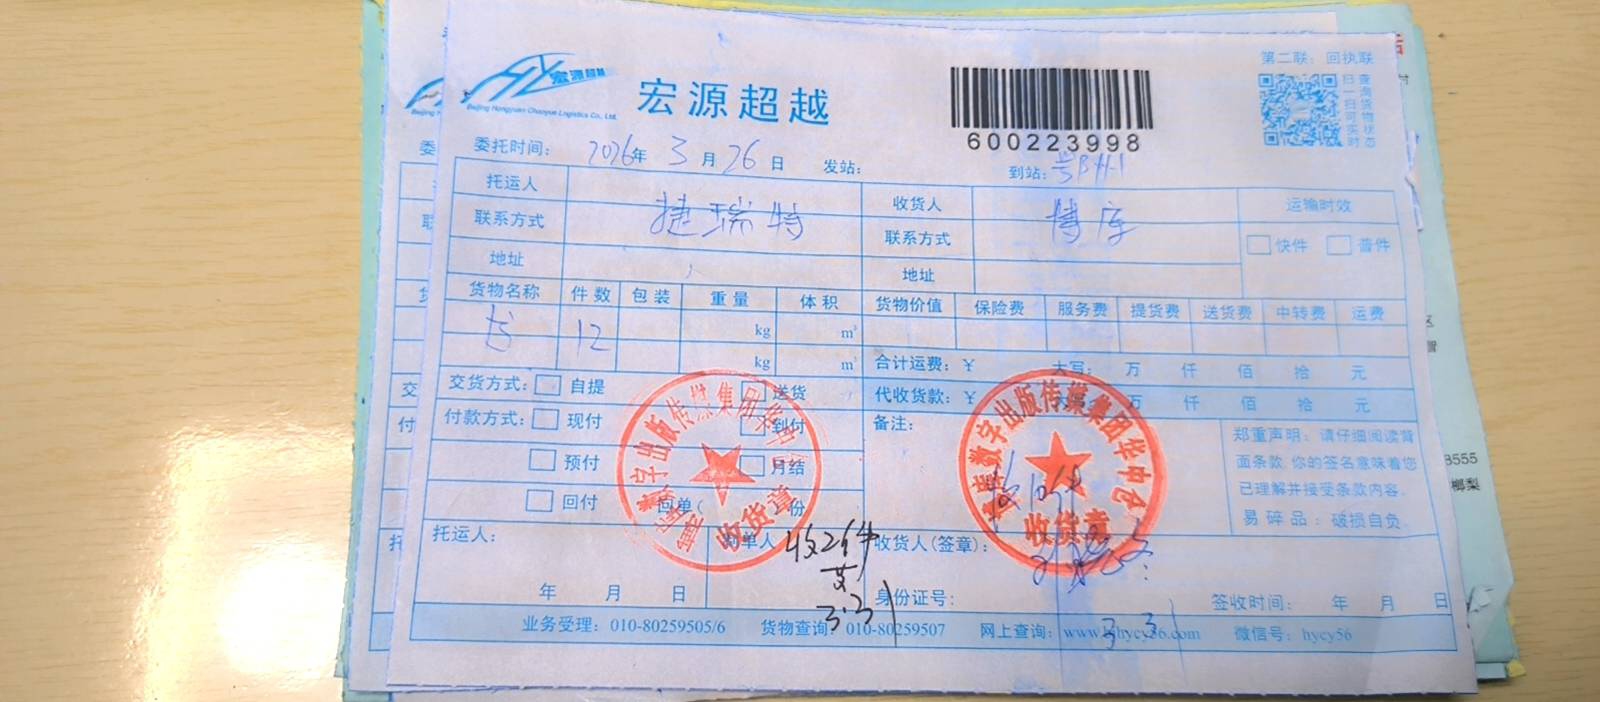 第二联：回执联
宏源超越
Beijing Hongyuan Chaoyue Logistics Co., Ltd.
宏源超越
600223998
扫一扫可实时
查询货物状态
委托时间： 2026年 3月26日 发站： 到站：
托运人 捷瑞特 收货人 博库 运输时效
联系方式 联系方式 快件 普件
地址 地址
货物名称 件数 包装 重量 体积 货物价值 保险费 服务费 提货费 送货费 中转费 运费
书 12 kg m³
kg m³ 合计运费：￥ 大写： 万 仟 佰 拾 元
交货方式： 自提 送货 代收货款：￥ 万 仟 佰 拾 元
付款方式： 现付 到付 备注：
预付 月结
回付 回单( 份
郑重声明：请仔细阅读背
面条款，您的签名意味着您
已理解并接受条款内容。
易碎品：破损自负。
数字出版传媒集团华中
收货章
数字出版传媒集团华中仓
收货章
收10件
托运人： 制单人 收2件 收货人(签章)：
3.31
年 月 日 身份证号： 签收时间： 年 月 日
业务受理：010-80259505/6 货物查询：010-80259507 网上查询：www.hycy56.com 微信号：hycy56
3 31
8555
榔梨